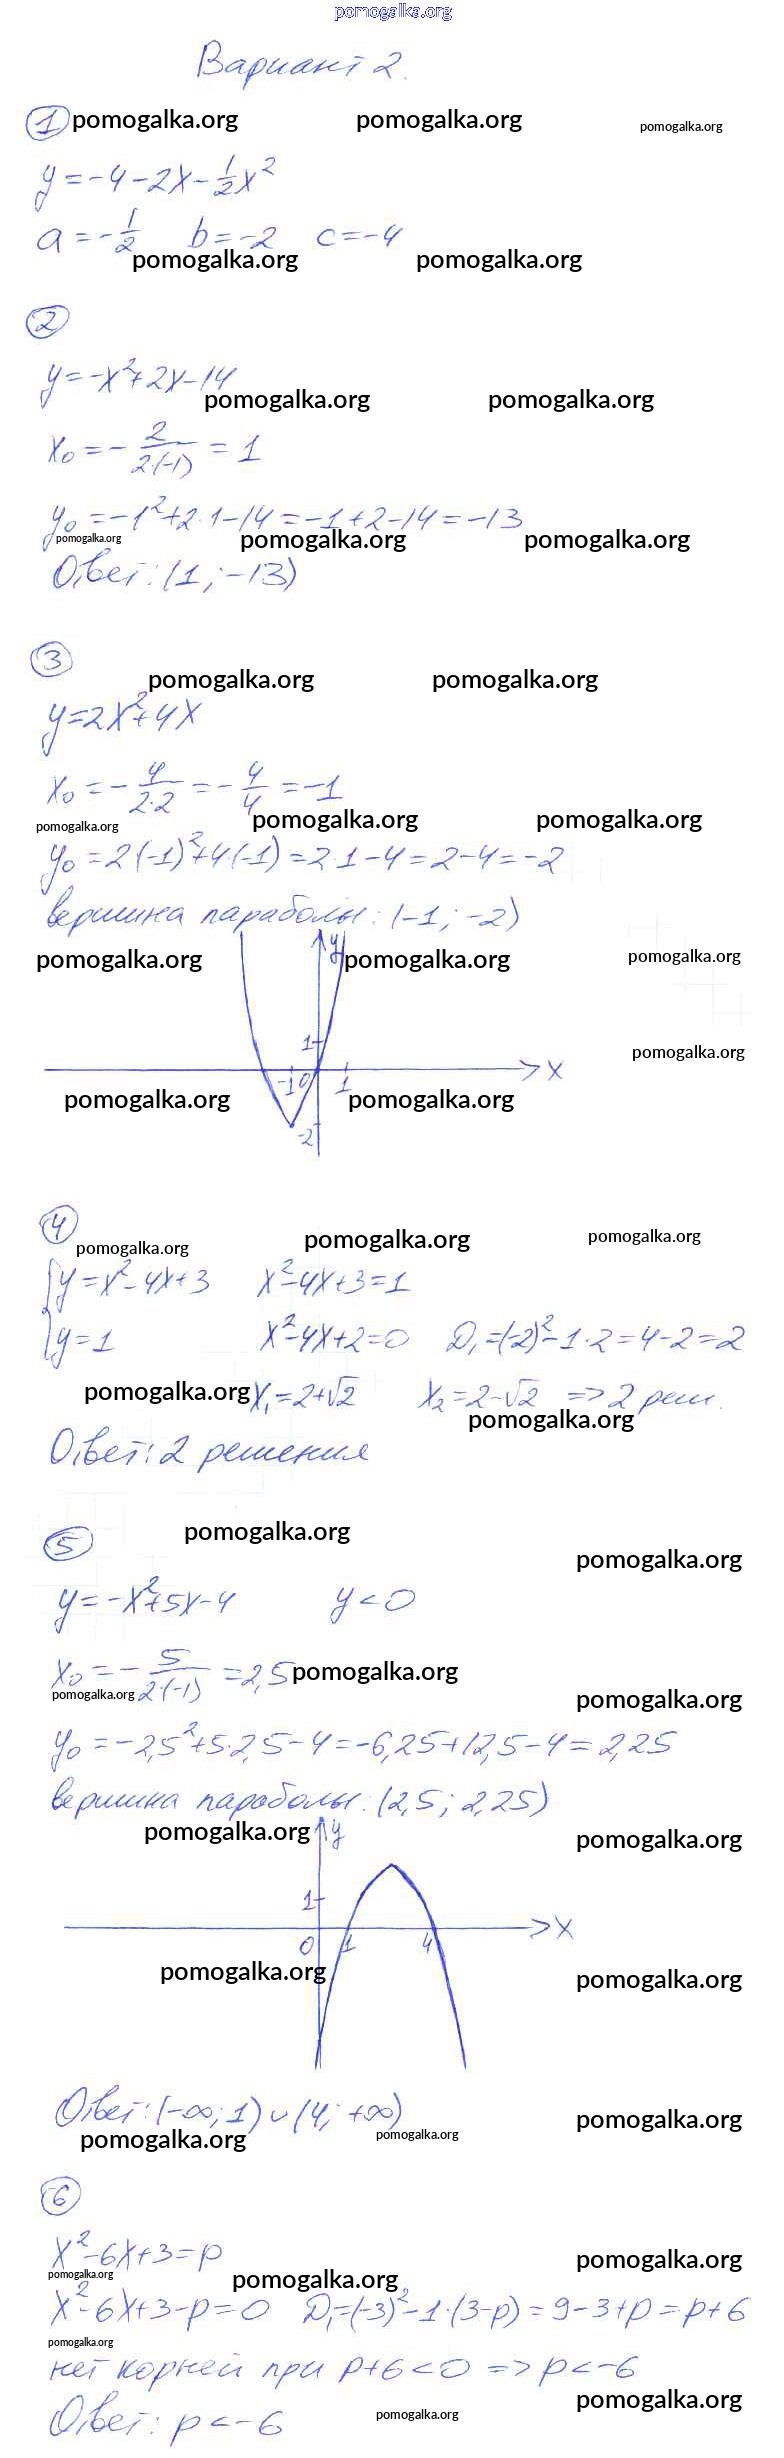 pomogalka.org
Вариант 2.
1 pomogalka.org pomogalka.org pomogalka.org
y = -4 - 2x - 1/2 x²
a = -1/2 b = -2 c = -4
pomogalka.org pomogalka.org
2
y = -x² + 2x - 14
pomogalka.org pomogalka.org
x₀ = - 2/(2·(-1)) = 1
y₀ = -1² + 2·1 - 14 = -1 + 2 - 14 = -13
pomogalka.org pomogalka.org pomogalka.org
Ответ: (1; -13)
3
pomogalka.org pomogalka.org
y = 2x² + 4x
x₀ = - 4/(2·2) = - 4/4 = -1
pomogalka.org pomogalka.org pomogalka.org
y₀ = 2·(-1)² + 4·(-1) = 2·1 - 4 = 2 - 4 = -2
вершина параболы: (-1; -2)
y
pomogalka.org pomogalka.org pomogalka.org
1
pomogalka.org
x
-1 0 1
pomogalka.org pomogalka.org
-2
4
pomogalka.org pomogalka.org pomogalka.org
{ y = x² - 4x + 3 x² - 4x + 3 = 1
y = 1 x² - 4x + 2 = 0 D₁ = (-2)² - 1·2 = 4 - 2 = 2
pomogalka.org x₁ = 2 + √2 x₂ = 2 - √2 => 2 реш.
pomogalka.org
Ответ: 2 решения
5
pomogalka.org
pomogalka.org
y = -x² + 5x - 4 y < 0
x₀ = - 5/(2·(-1)) = 2,5 pomogalka.org
pomogalka.org pomogalka.org
y₀ = -2,5² + 5·2,5 - 4 = -6,25 + 12,5 - 4 = 2,25
вершина параболы: (2,5; 2,25)
pomogalka.org y pomogalka.org
1
x
0 1 4
pomogalka.org pomogalka.org
Ответ: (-∞; 1) ∪ (4; +∞)
pomogalka.org pomogalka.org pomogalka.org
6
x² - 6x + 3 = p
pomogalka.org
pomogalka.org pomogalka.org
x² - 6x + 3 - p = 0 D₁ = (-3)² - 1·(3-p) = 9 - 3 + p = p + 6
pomogalka.org
нет корней при p + 6 < 0 => p < -6
pomogalka.org
Ответ: p < -6
pomogalka.org